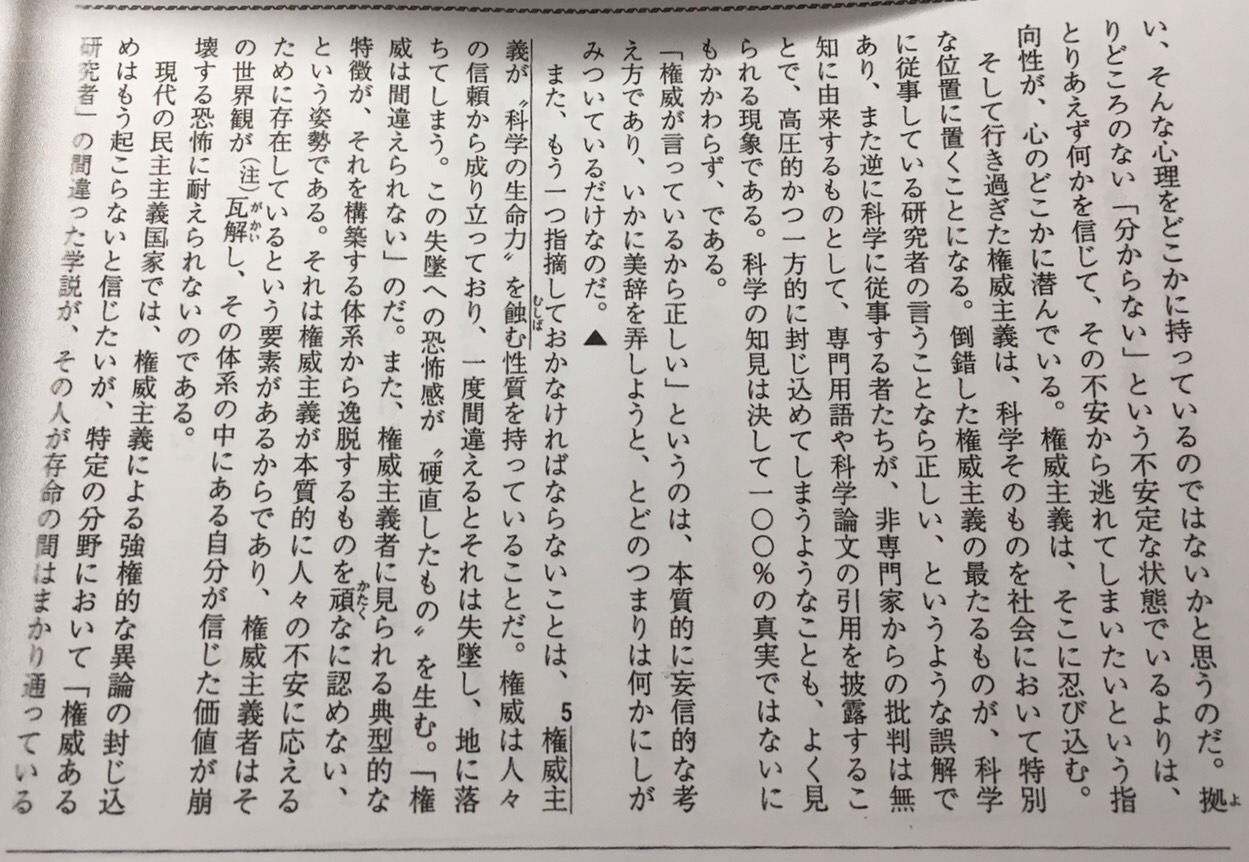 い、そんな心理をどこかに持っているのではないかと思うのだ。拠
よ
りどころのない「分からない」という不安定な状態でいるよりは、
とりあえず何かを信じて、その不安から逃れてしまいたいという指
向性が、心のどこかに潜んでいる。権威主義は、そこに忍び込む。
そして行き過ぎた権威主義は、科学そのものを社会において特別
な位置に置くことになる。倒錯した権威主義の最たるものが、科学
に従事している研究者の言うことなら正しい、というような誤解で
あり、また逆に科学に従事する者たちが、非専門家からの批判は無
知に由来するものとして、専門用語や科学論文の引用を披露するこ
とで、高圧的かつ一方的に封じ込めてしまうようなことも、よく見
られる現象である。科学の知見は決して一〇〇%の真実ではないに
もかかわらず、である。
「権威が言っているから正しい」というのは、本質的に妄信的な考
え方であり、いかに美辞を弄しようと、とどのつまりは何かにしが
みついているだけなのだ。▲
また、もう一つ指摘しておかなければならないことは、5権威主
義が〝科学の生命力〟を蝕む性質を持っていることだ。権威は人々
むしば
の信頼から成り立っており、一度間違えるとそれは失墜し、地に落
ちてしまう。この失墜への恐怖感が〝硬直したもの〟を生む。「権
威は間違えられない」のだ。また、権威主義者に見られる典型的な
特徴が、それを構築する体系から逸脱するものを頑なに認めない、
かたく
という姿勢である。それは権威主義が本質的に人々の不安に応える
ために存在しているという要素があるからであり、権威主義者はそ
の世界観が(注)瓦解し、その体系の中にある自分が信じた価値が崩
がかい
壊する恐怖に耐えられないのである。
現代の民主主義国家では、権威主義による強権的な異論の封じ込
めはもう起こらないと信じたいが、特定の分野において「権威ある
研究者」の間違った学説が、その人が存命の間はまかり通っている